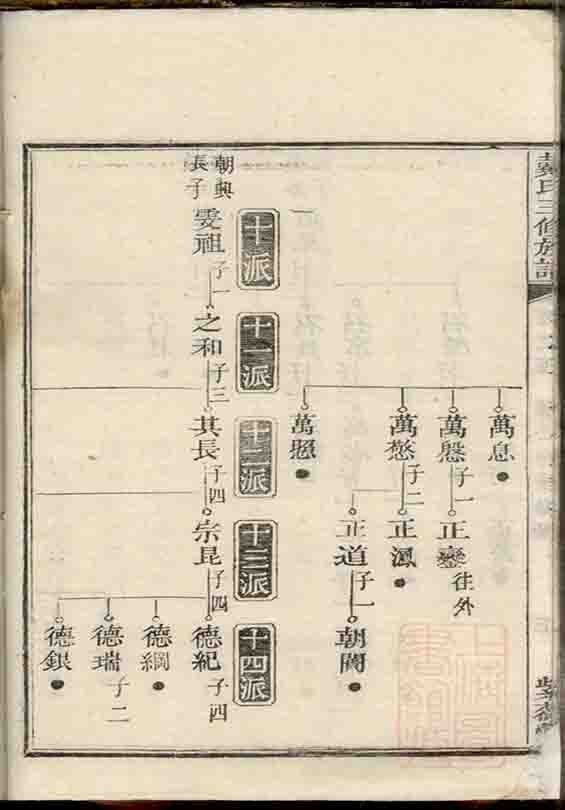 戴氏三修族譜
萬息
萬慇 子一
正鑾 往外
萬慜 子二
正鳳
正道 子一
朝閣
萬懸
十派
十一派
十二派
十三派
十四派
朝興
長子
雯祖 子一
之和 子三
其長 子四
宗昆 子四
德紀 子四
德綱
德瑞 子二
德銀